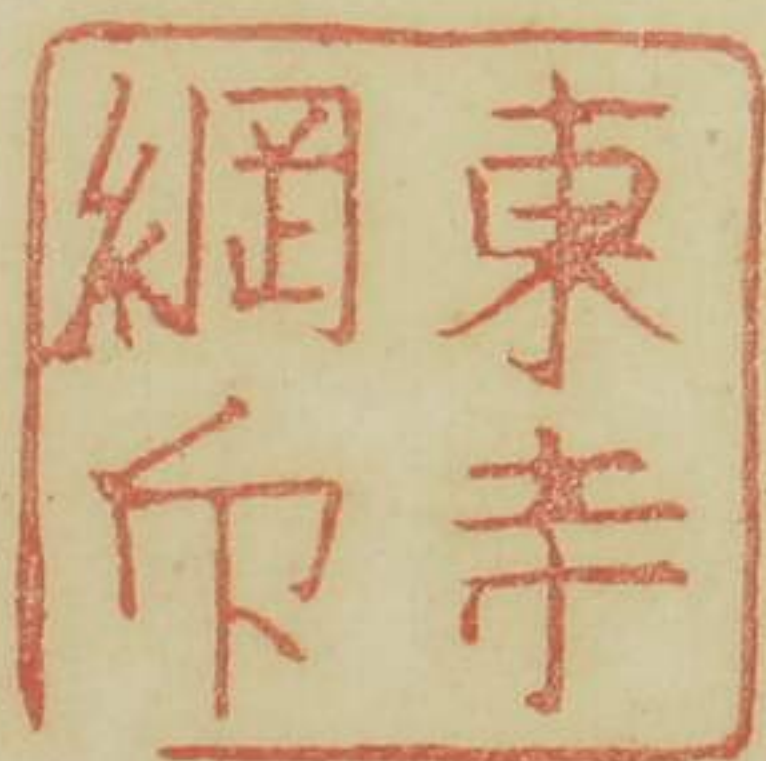 東寺
綱印